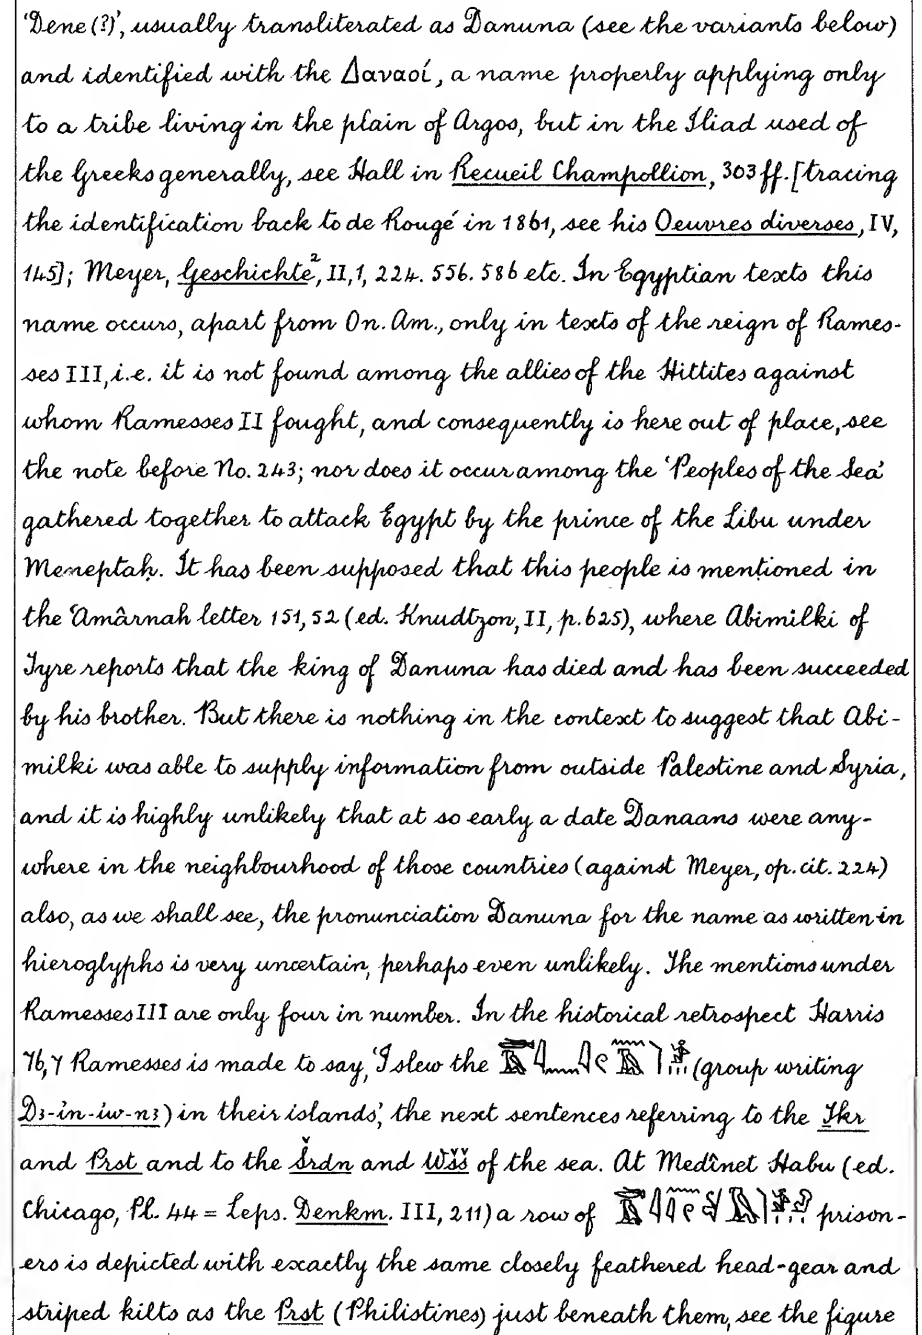 ‘Dene(?)’, usually transliterated as Danuna (see the variants below)
and identified with the Δαναοί, a name properly applying only
to a tribe living in the plain of Argos, but in the Iliad used of
the Greeks generally, see Hall in Recueil Champollion, 303 ff. [tracing
the identification back to de Rougé in 1861, see his Oeuvres diverses, IV,
145]; Meyer, Geschichte², II, 1, 224. 556. 586 etc. In Egyptian texts this
name occurs, apart from On. Am., only in texts of the reign of Rames-
ses III, i.e. it is not found among the allies of the Hittites against
whom Ramesses II fought, and consequently is here out of place, see
the note before No. 243; nor does it occur among the ‘Peoples of the Sea’
gathered together to attack Egypt by the prince of the Libu under
Meneptaḥ. It has been supposed that this people is mentioned in
the ‘Amârnah letter 151, 52 (ed. Knudtzon, II, p. 625), where Abimilki of
Tyre reports that the king of Danuna has died and has been succeeded
by his brother. But there is nothing in the context to suggest that Abi-
milki was able to supply information from outside Palestine and Syria,
and it is highly unlikely that at so early a date Danaans were any-
where in the neighbourhood of those countries (against Meyer, op. cit. 224)
also, as we shall see, the pronunciation Danuna for the name as written in
hieroglyphs is very uncertain, perhaps even unlikely. The mentions under
Ramesses III are only four in number. In the historical retrospect Harris
76, 7 Ramesses is made to say, ‘I slew the (group writing
D₃-in-iw-n₃) in their islands’, the next sentences referring to the Ṯkr
and Prst and to the Šrdn and Wšš of the sea. At Medînet Habu (ed.
Chicago, Pl. 44 = Leps. Denkm. III, 211) a row of prison-
ers is depicted with exactly the same closely feathered head-gear and
striped kilts as the Prst (Philistines) just beneath them, see the figure